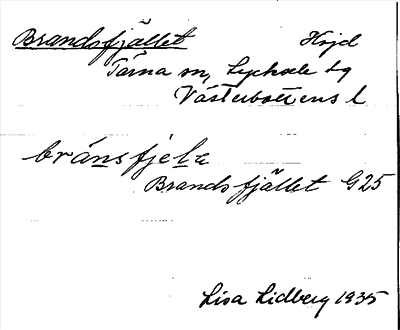 Brandsfjället Höjd
Tärna sn, Lycksele tg
Västerbottens l
bránsfjela
Brandsfjället G25
Lisa Lidberg 1935